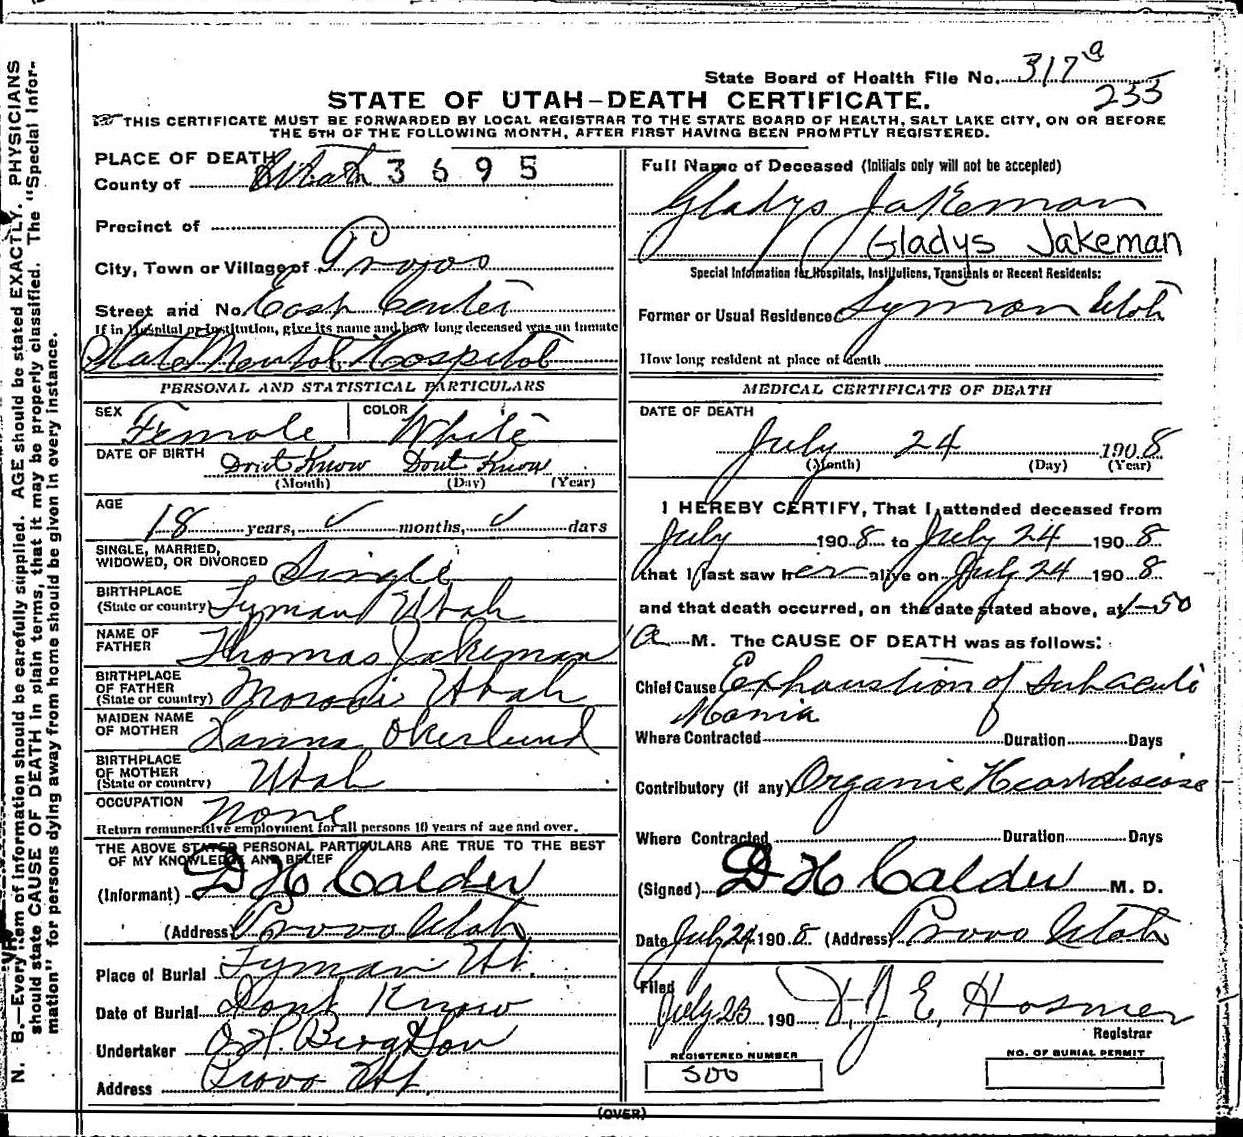 State Board of Health File No. 317a
233
STATE OF UTAH—DEATH CERTIFICATE.
THIS CERTIFICATE MUST BE FORWARDED BY LOCAL REGISTRAR TO THE STATE BOARD OF HEALTH, SALT LAKE CITY, ON OR BEFORE
THE 5TH OF THE FOLLOWING MONTH, AFTER FIRST HAVING BEEN PROMPTLY REGISTERED.
PLACE OF DEATH
County of Utah 3695
Precinct of
City, Town or Village of Provo
Street and No. East Center
If in Hospital or Institution, give its name and how long deceased was an inmate
State Mental Hospital
PERSONAL AND STATISTICAL PARTICULARS
SEX Female COLOR White
DATE OF BIRTH Dont Know Dont Know
(Month) (Day) (Year)
AGE
18 years, months, days
SINGLE, MARRIED,
WIDOWED, OR DIVORCED Single
BIRTHPLACE
(State or country) Lyman Utah
NAME OF
FATHER Thomas Jakeman
BIRTHPLACE
OF FATHER
(State or country) Moroni Utah
MAIDEN NAME
OF MOTHER Hanna Okerlund
BIRTHPLACE
OF MOTHER
(State or country) Utah
OCCUPATION None
Return remunerative employment for all persons 10 years of age and over.
THE ABOVE STATED PERSONAL PARTICULARS ARE TRUE TO THE BEST
OF MY KNOWLEDGE AND BELIEF
(Informant) D H Calder
(Address) Provo Utah
Place of Burial Lyman Ut.
Date of Burial Dont Know
Undertaker
Address Provo Ut.
Full Name of Deceased (Initials only will not be accepted)
Gladys Jakeman
Gladys Jakeman
Special Information for Hospitals, Institutions, Transients or Recent Residents:
Former or Usual Residence Lyman Utah
How long resident at place of death
MEDICAL CERTIFICATE OF DEATH
DATE OF DEATH
July 24 1908
(Month) (Day) (Year)
I HEREBY CERTIFY, That I attended deceased from
July 1908 to July 24 1908
that I last saw her alive on July 24 1908
and that death occurred, on the date stated above, at 1-50
a M. The CAUSE OF DEATH was as follows:
Chief Cause Exhaustion of Subacute
Mania
Where Contracted Duration Days
Contributory (if any) Organic Heart disease
Where Contracted Duration Days
(Signed) D H Calder M. D.
Date July 24 1908 (Address) Provo Utah
Filed
July 190 Hosmer
Registrar
REGISTERED NUMBER
500
NO. OF BURIAL PERMIT
(OVER)
N. B.—Every item of information should be carefully supplied. AGE should be stated EXACTLY. PHYSICIANS
should state CAUSE OF DEATH in plain terms, that it may be properly classified. The "Special Infor-
mation" for persons dying away from home should be given in every instance.